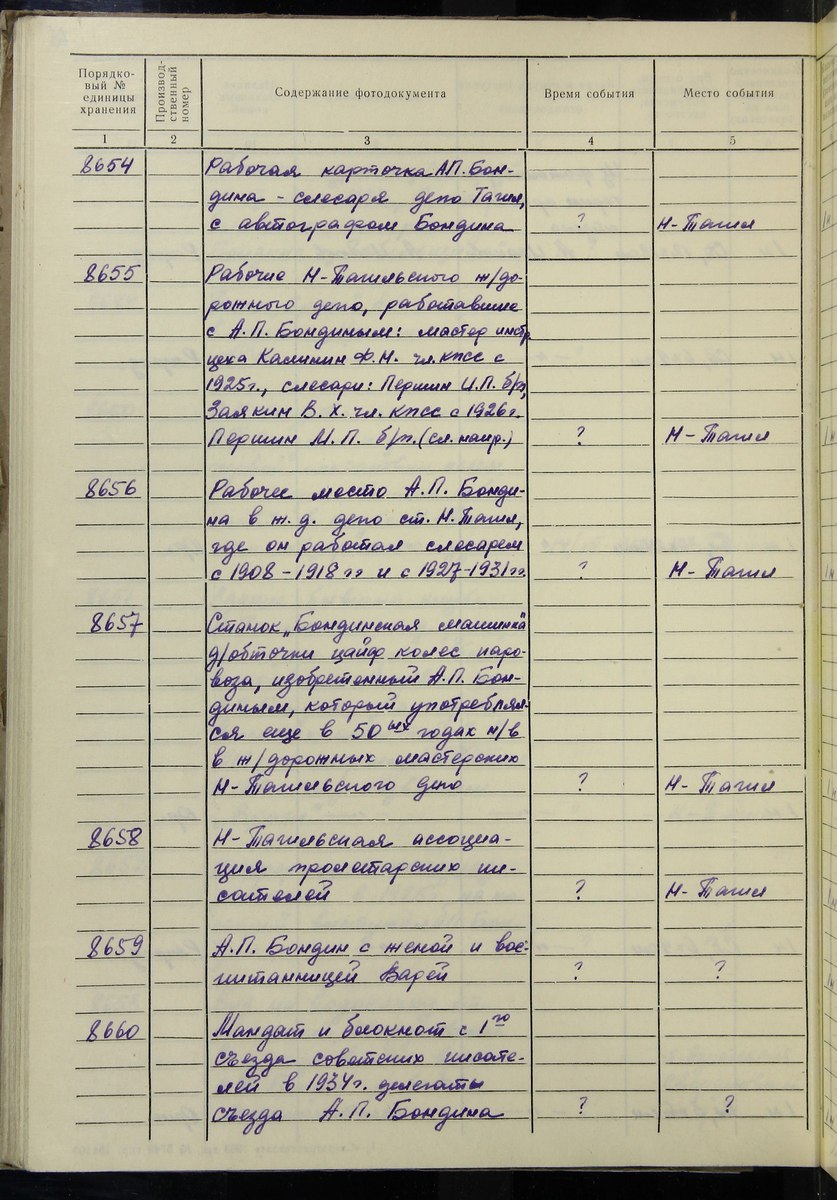 Порядко-
вый №
единицы
хранения
Производ-
ственный
номер
Содержание фотодокумента
Время события
Место события
1 2 3 4 5
8654 Рабочая карточка А.П. Бон-
дина - слесаря депо Тагил,
с автографом Бондина ? Н-Тагил
8655 Рабочие Н-Тагильского ж/до-
рожного депо, работавшие
с А.П. Бондиным: мастер инстр.
цеха Калинин Ф.Н. чл. кпсс с
1925г., слесари: Першин И.П. б/п,
Залкин В.Х. чл. кпсс с 1926г.
Першин М.П. б/п. (сл. напр.) ? Н-Тагил
8656 Рабочее место А.П. Бонди-
на в ж.д. депо ст. Н.Тагил,
где он работал слесарем
с 1908-1918 гг и с 1927-1931 гг. ? Н-Тагил
8657 Станок "Бондинская машинка"
д/обточки цайф колес паро-
воза, изобретенный А.П. Бон-
диным, который употреблял-
ся еще в 50ых годах н/в
в ж/дорожных мастерских
Н-Тагильского депо ? Н-Тагил
8658 Н-Тагильская ассоциа-
ция пролетарских пи-
сателей ? Н-Тагил
8659 А.П. Бондин с женой и вос-
питанницей Варей ? ?
8660 Мандат и блокнот с 1го
съезда советских писате-
лей в 1934г. делегаты
съезда А.П. Бондина ? ?